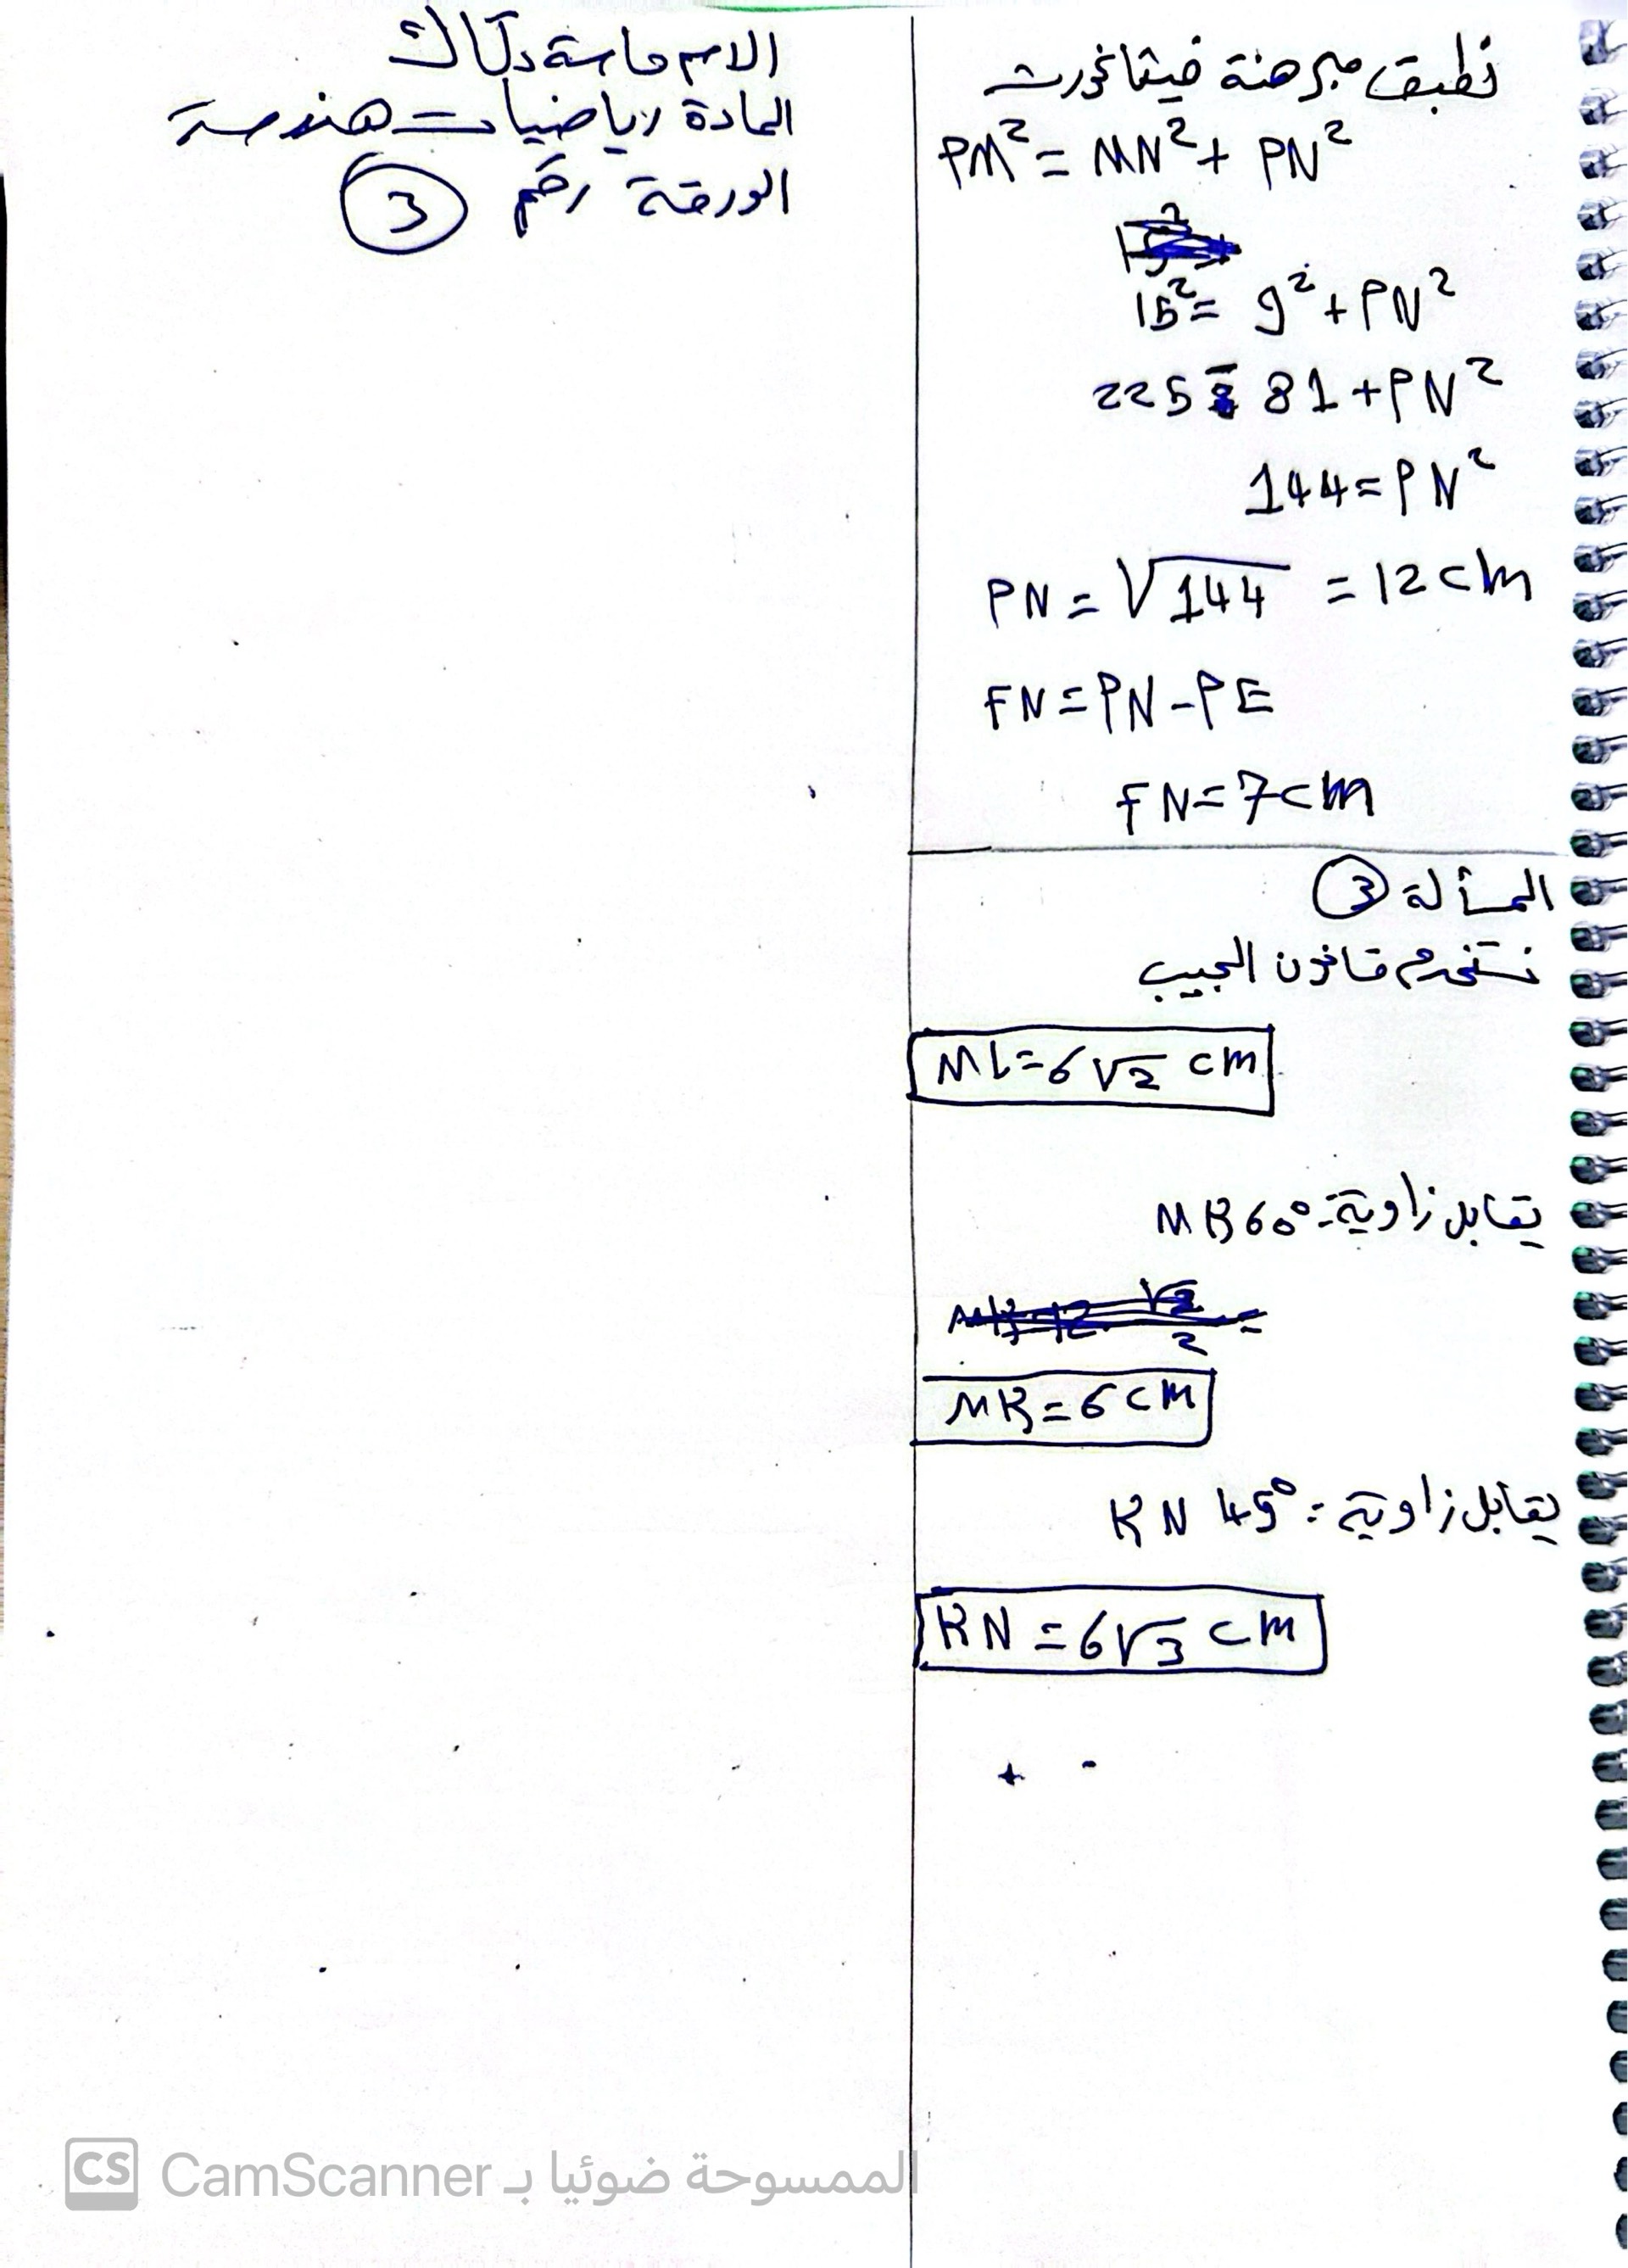 الاسم ماسة دكاك
المادة رياضيات هندسة
الورقة رقم 3
نطبق مبرهنة فيثاغورث
PM² = MN² + PN²
15² = 9² + PN²
225 = 81 + PN²
144 = PN²
PN = √144 = 12 cm
FN = PN - PE
FN = 7 cm
المسألة 3
نستخدم قانون الجيب
ML = 6√2 cm
يقابل زاوية: MK 60°
MK = 6 cm
يقابل زاوية: KN 45°
KN = 6√3 cm
CS CamScanner الممسوحة ضوئيا بـ